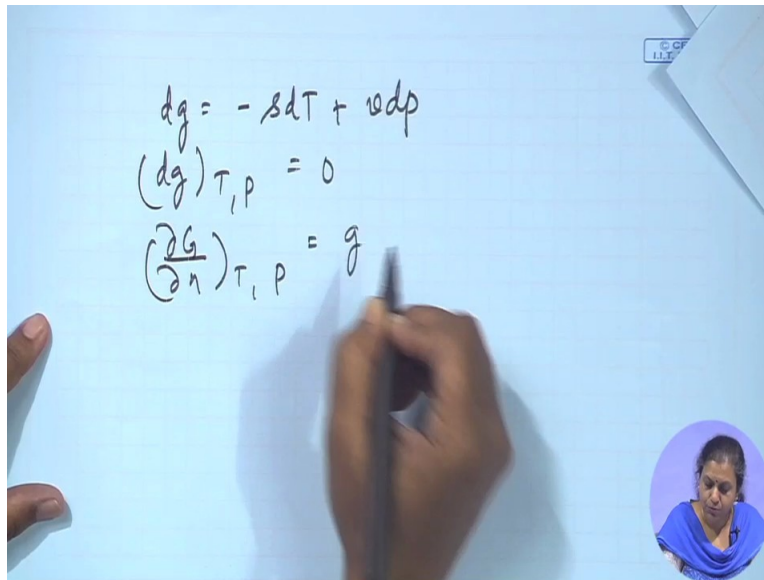 © CE
I.I.T.
dg = - sdT + vdp
(dg)_{T,P} = 0
(∂G/∂n)_{T,P} = g